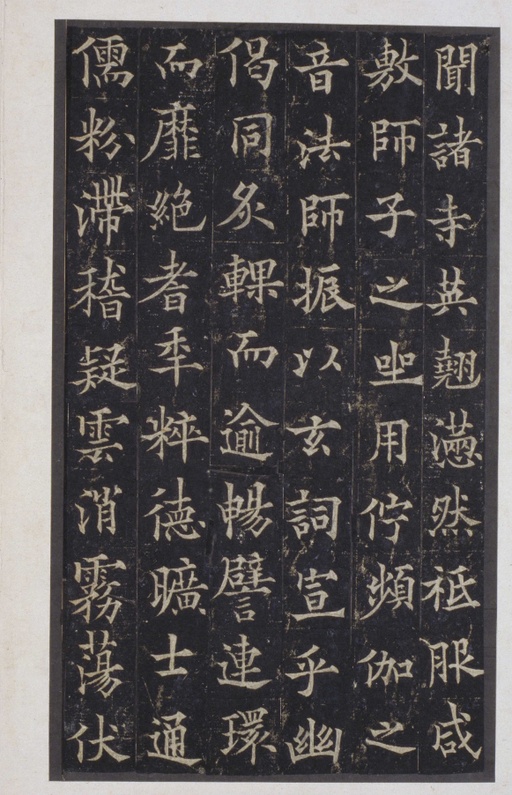 聞諸寺英翹懣然祗服咸
敷師子之坐用佇頻伽之
音法師振以玄詞宣乎幽
偈同炙輠而逾暢譬連環
而靡絕耆年粹德曠士通
儒粉滯稽疑雲消霧蕩伏